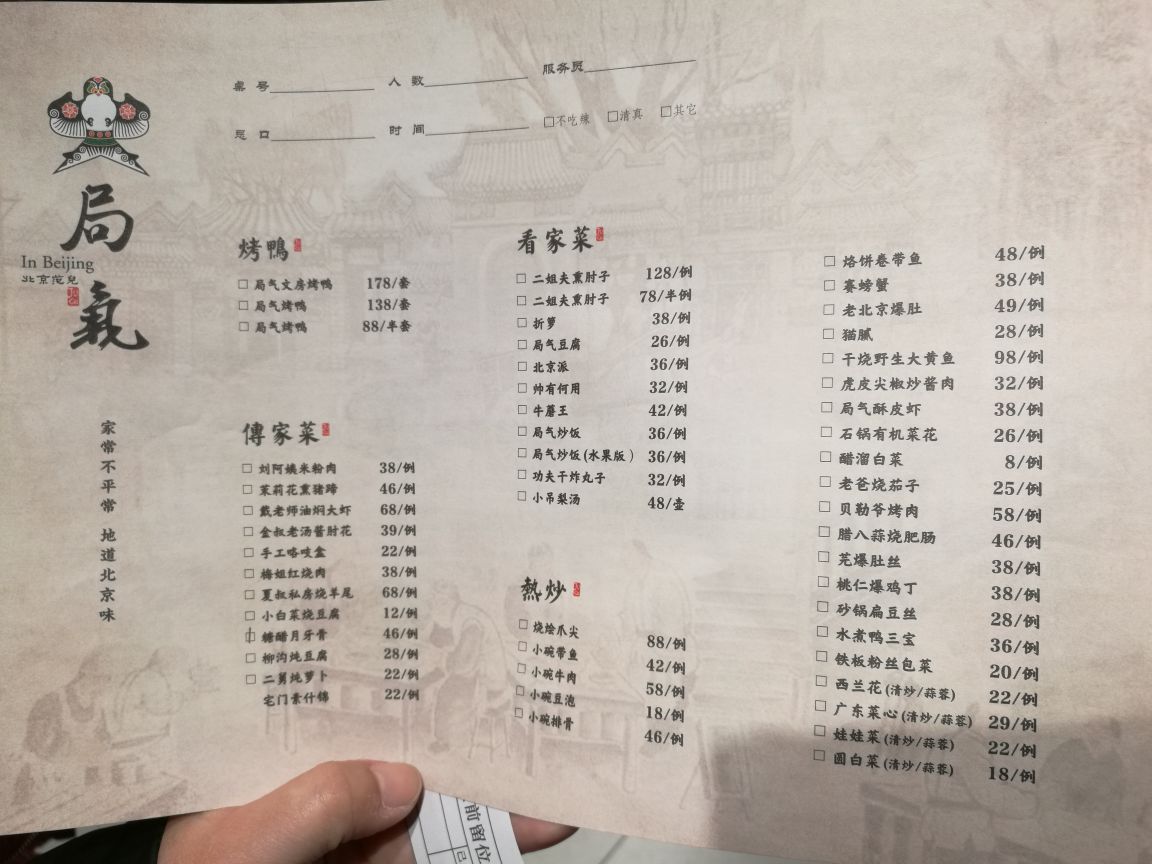 桌号 人数 服务员
忌口 时间 □不吃辣 □清真 □其它
局
In Beijing
北京范兒
氣
家常不平常 地道北京味
烤鴨
□ 局气文房烤鸭 178/套
□ 局气烤鸭 138/套
□ 局气烤鸭 88/半套
傳家菜
□ 刘阿姨米粉肉 38/例
□ 茉莉花熏猪蹄 46/例
□ 戴老师油焖大虾 68/例
□ 金叔老汤酱肘花 39/例
□ 手工咯吱盒 22/例
□ 梅姐红烧肉 38/例
□ 夏叔私房烧羊尾 68/例
□ 小白菜烧豆腐 12/例
□ 糖醋月牙骨 46/例
□ 柳沟炖豆腐 28/例
□ 二舅炖萝卜 22/例
宅门素什锦 22/例
看家菜
□ 二姐夫熏肘子 128/例
□ 二姐夫熏肘子 78/半例
□ 折箩 38/例
□ 局气豆腐 26/例
□ 北京派 36/例
□ 帅有何用 32/例
□ 牛蘑王 42/例
□ 局气炒饭 36/例
□ 局气炒饭(水果版) 36/例
□ 功夫干炸丸子 32/例
□ 小吊梨汤 48/壶
熱炒
□ 烧烩爪尖 88/例
□ 小碗带鱼 42/例
□ 小碗牛肉 58/例
□ 小碗豆泡 18/例
□ 小碗排骨 46/例
□ 烙饼卷带鱼 48/例
□ 赛螃蟹 38/例
□ 老北京爆肚 49/例
□ 猫腻 28/例
□ 干烧野生大黄鱼 98/例
□ 虎皮尖椒炒酱肉 32/例
□ 局气酥皮虾 38/例
□ 石锅有机菜花 26/例
□ 醋溜白菜 8/例
□ 老爸烧茄子 25/例
□ 贝勒爷烤肉 58/例
□ 腊八蒜烧肥肠 46/例
□ 芫爆肚丝 38/例
□ 桃仁爆鸡丁 38/例
□ 砂锅扁豆丝 28/例
□ 水煮鸭三宝 36/例
□ 铁板粉丝包菜 20/例
□ 西兰花(清炒/蒜蓉) 22/例
□ 广东菜心(清炒/蒜蓉) 29/例
□ 娃娃菜(清炒/蒜蓉) 22/例
□ 圆白菜(清炒/蒜蓉) 18/例
前留位